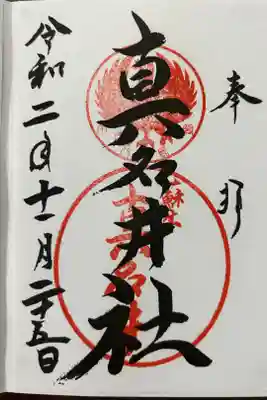 奉拝
真名井社
令和二年十一月二十五日